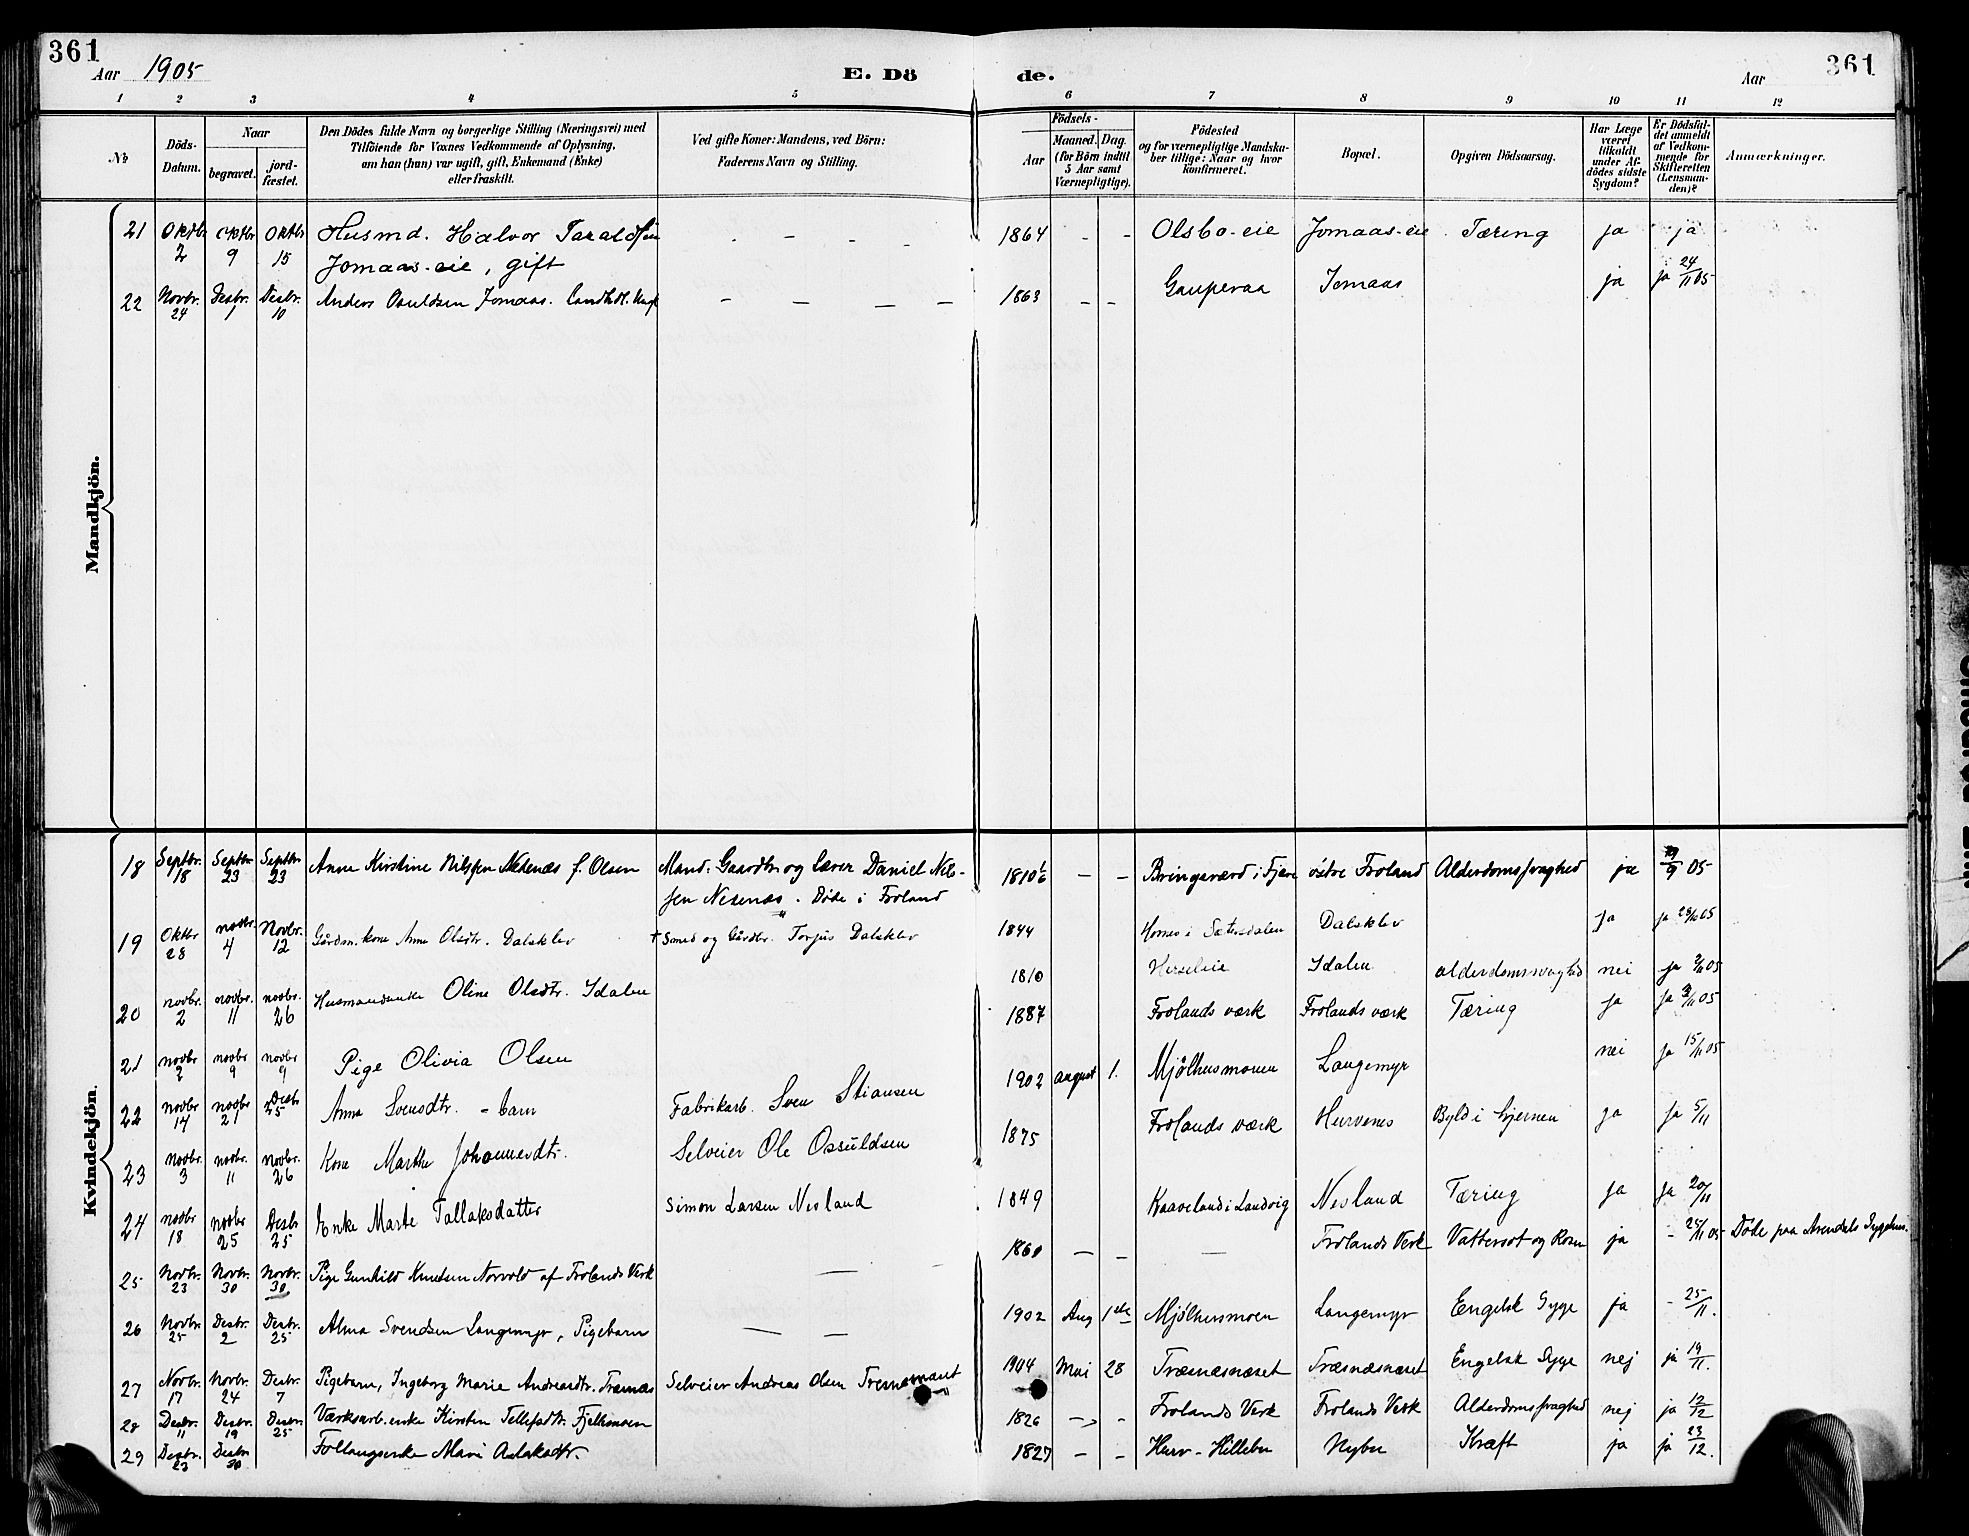 361
Aar 1905
E. Dö
de.
Aar
361
1 2 3 4 5 6 7 8 9 10 11 12
№
Döds-
Datum.
Naar
begravet.
jord-
fæstet.
Den Dödes fulde Navn og borgerlige Stilling (Næringsvei) med
Tilföiende for Voxnes Vedkommende af Oplysning,
om han (hun) var ugift, gift, Enkemand (Enke)
eller fraskilt.
Ved gifte Koner: Mandens, ved Börn:
Faderens Navn og Stilling.
Födsels-
Aar
Maaned. Dag.
(for Börn indtil
5 Aar samt
Værnepligtige).
Födested
og for værnepligtige Mandska-
ber tillige: Naar og hvor
konfirmeret.
Bopæl.
Opgiven Dödsaarsag.
Har Læge
været
tilkaldt
under Af-
dödes sidste
Sygdom?
Er Dödsfal-
det anmeldt
af Vedkom-
mende for
Skifteretten
(Lensman-
den)?
Anmærkninger.
Mandkjön.
21 Oktbr. 2 Oktbr 9 Oktbr 15 Husmd. Halvor Taraldsen - - - - 1864 - - Olsbo-eie Jomaas-eie Tæring ja ja
Jomaas-eie, gift
22 Novbr. 24 Desbr. 1 Desbr. 10 Anders Osuldsen Jomaas. - - - - 1863 - - Gauperaa Jomaas ja ja 24/11 05
Kvindekjön.
18 Septbr. 18 Septbr 23 Septbr 23 Anne Kirstine Nilssen Nesenæs f. Olsen Mand: Gaardbr. og Lærer Daniel Nil- 1810 - - Bringsværd i Fjære östre Froland Alderdomssvaghed ja 05
sen Nesenæs. Døde i Froland
19 Oktbr 28 novbr. 4 Novbr. 12 Gårdm. kone Anne Olsdtr. Dalsklev † Smed og Gårdbr. Torjus Dalsklev 1844 Hornes i Sætersdalen Dalsklev ja ja 29/10 05
20 novbr. 2 novbr. 11 novbr. 26 Husmandsenke Oline Olsdtr. Idalen 1810 Herseleie Idalen alderdomssvaghed nei ja 2/11 05
21 novbr 2 novbr 9 novbr 9 Pige Olivia Olsen 1887 Frolands værk Frolands værk Tæring ja ja 3/11 05
22 novbr 14 novbr 21 Desbr 25 Anna Svensdtr. - barn Fabrikarb. Sven Stiansen 1902 august 1. Mjølhusmonen Langemyr nei ja 15/11 05
23 novbr. 3 novbr. 11 novbr. 26 Kone Marthe Johannesdtr. Selveier Ole Ossuldsen 1875 Frolands værk Hurvenes Byld i hjernen ja ja 5/11
24 novbr 18 novbr 25 Desbr 25 Enke Marte Tallaksdatter Simon Larsen Nesland 1849 Kaaveland i Landvig Nesland Tæring ja ja 20/11
25 Novbr. 23 Novbr. 30 Novbr. 30 Pige Gunhild Knutsen Norvold af Frolands Verk — 1860 - - — Frolands Verk Vattersot og Rosen ja - 25/11 05 Døde paa Arendals Sygehus.
26 Novbr. 25 Desbr. 2 Desbr. 25 Alma Svendsen Langemyr, Pigebarn — — 1902 Aug 1ste Mjølhusmoen Langemyr Engelsk Syge ja - 25/11.
27 Novbr. 17 Novbr. 24 Desbr. 7 Pigebarn, Ingeborg Marie Andreasdtr. Træsnæs Selveier Andreas Olsen Tresnæsnæset 1904 Mai 28 Træsnæsnæset Træsnæsnæset Engelsk Syge nej ja 19/11.
28 Desbr. 11 Desbr. 19 Desbr. 25 Værksarb. enke Kirsten Tellefsdtr. Fjelhsmoen 1826 - - Frolands Verk Frolands Verk Alderdomssvaghed nej ja 12/12
29 Desbr. 23 Desbr 30 Marie Aslaksdtr. 1827 - - Hurv-Hillebu Nybu Kræft ja ja 23/12.